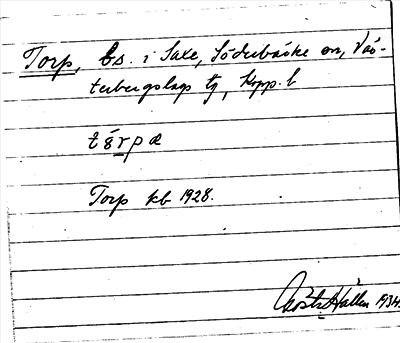 Torp, bs. i Saxe, Söderbärke sn, Väs-
terbergslags tg, Kopp. l
tórpæ
Torp kb 1928.
Gösta Hallén 1934.